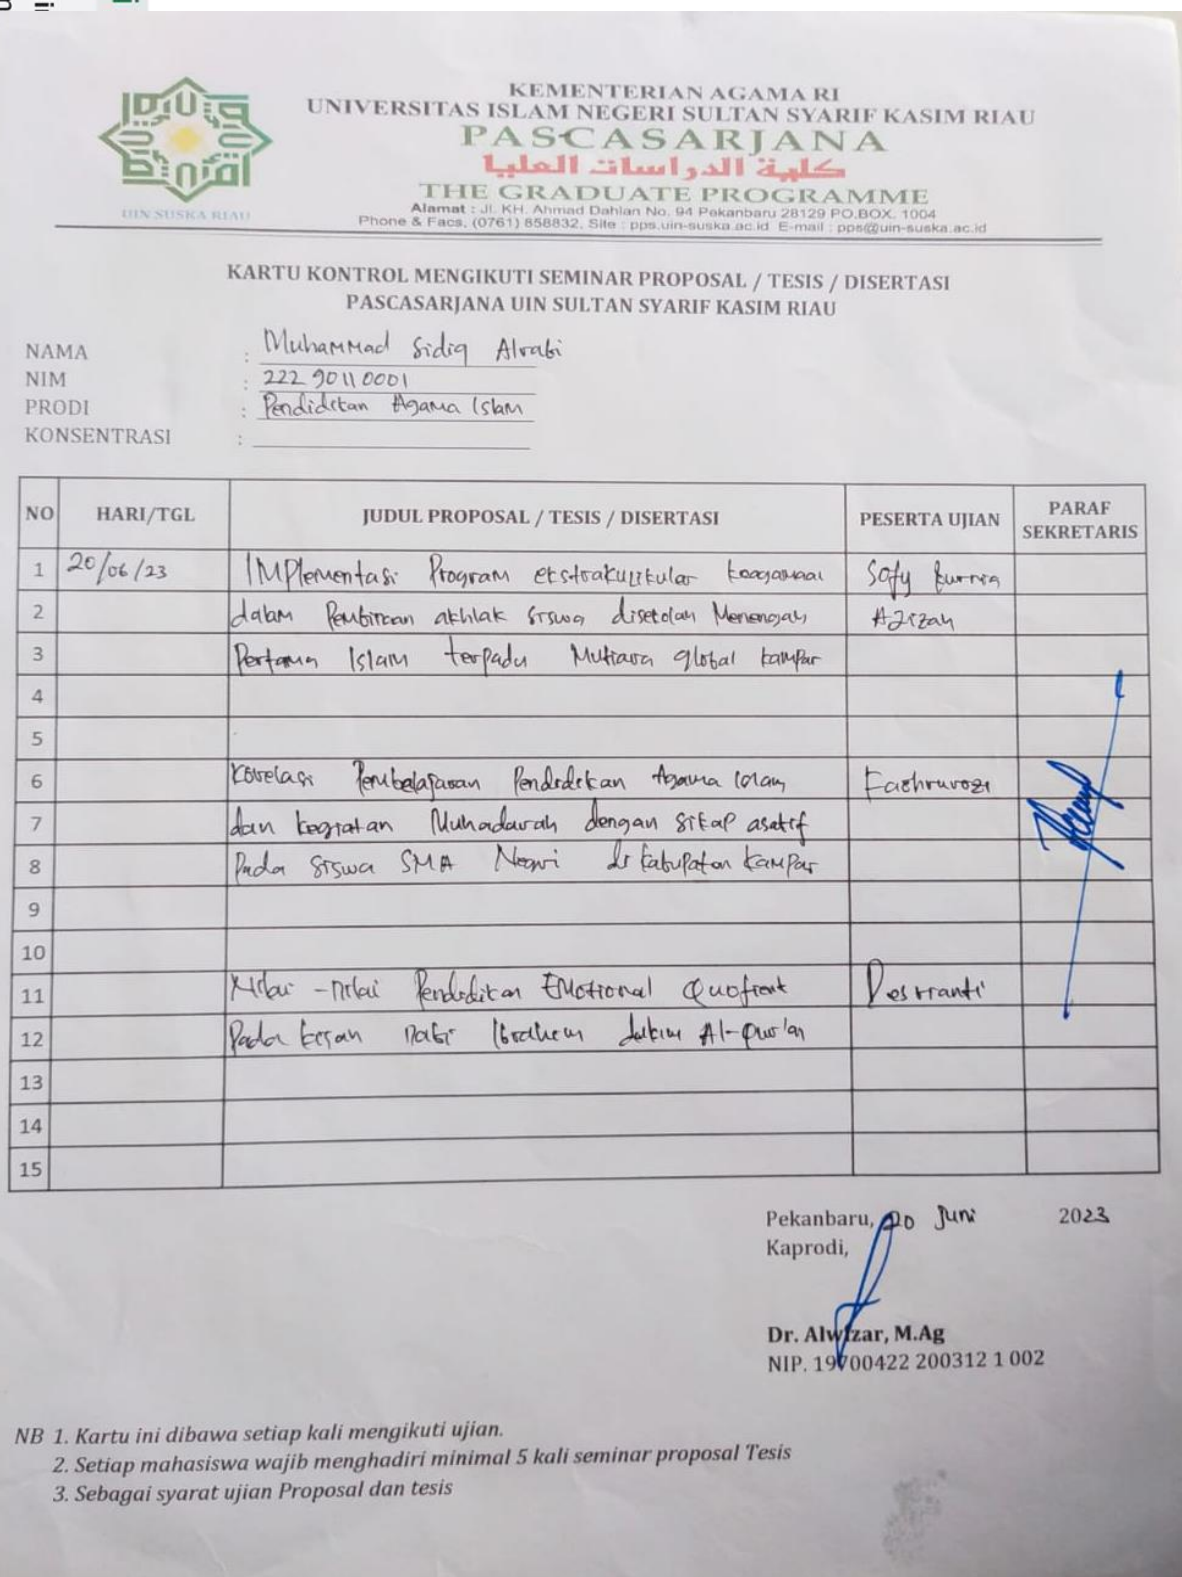 UIN SUSKA RIAU
KEMENTERIAN AGAMA RI
UNIVERSITAS ISLAM NEGERI SULTAN SYARIF KASIM RIAU
PASCASARJANA
كلية الدراسات العليا
THE GRADUATE PROGRAMME
Alamat : Jl. KH. Ahmad Dahlan No. 94 Pekanbaru 28129 PO.BOX. 1004
Phone & Facs, (0761) 858832, Site : pps.uin-suska.ac.id E-mail : pps@uin-suska.ac.id
KARTU KONTROL MENGIKUTI SEMINAR PROPOSAL / TESIS / DISERTASI
PASCASARJANA UIN SULTAN SYARIF KASIM RIAU
NAMA : Muhammad Sidiq Alrabi
NIM : 222 9011 0001
PRODI : Pendidikan Agama Islam
KONSENTRASI :
NO HARI/TGL JUDUL PROPOSAL / TESIS / DISERTASI PESERTA UJIAN PARAF SEKRETARIS
1 20/06/23 Implementasi Program ekstrakulikular keagamaan Sofy kurnia
2 dalam Pembinaan akhlak siswa disekolah Menengah Azizah
3 Pertama Islam terpadu Mutiara global kampar
4
5
6 Korelasi Pembelajaran Pendidikan Agama Islam Fachrurozi
7 dan kegiatan Muhadarah dengan sikap asatif
8 Pada siswa SMA Negri di kabupaten kampar
9
10
11 Nilai-nilai Pendidikan Emotional Quotient Desrianti
12 Pada kisah nabi Ibrahem dalam Al-Qur'an
13
14
15
Pekanbaru, 20 Juni 2023
Kaprodi,
Dr. Alwizar, M.Ag
NIP. 19700422 200312 1 002
NB 1. Kartu ini dibawa setiap kali mengikuti ujian.
2. Setiap mahasiswa wajib menghadiri minimal 5 kali seminar proposal Tesis
3. Sebagai syarat ujian Proposal dan tesis